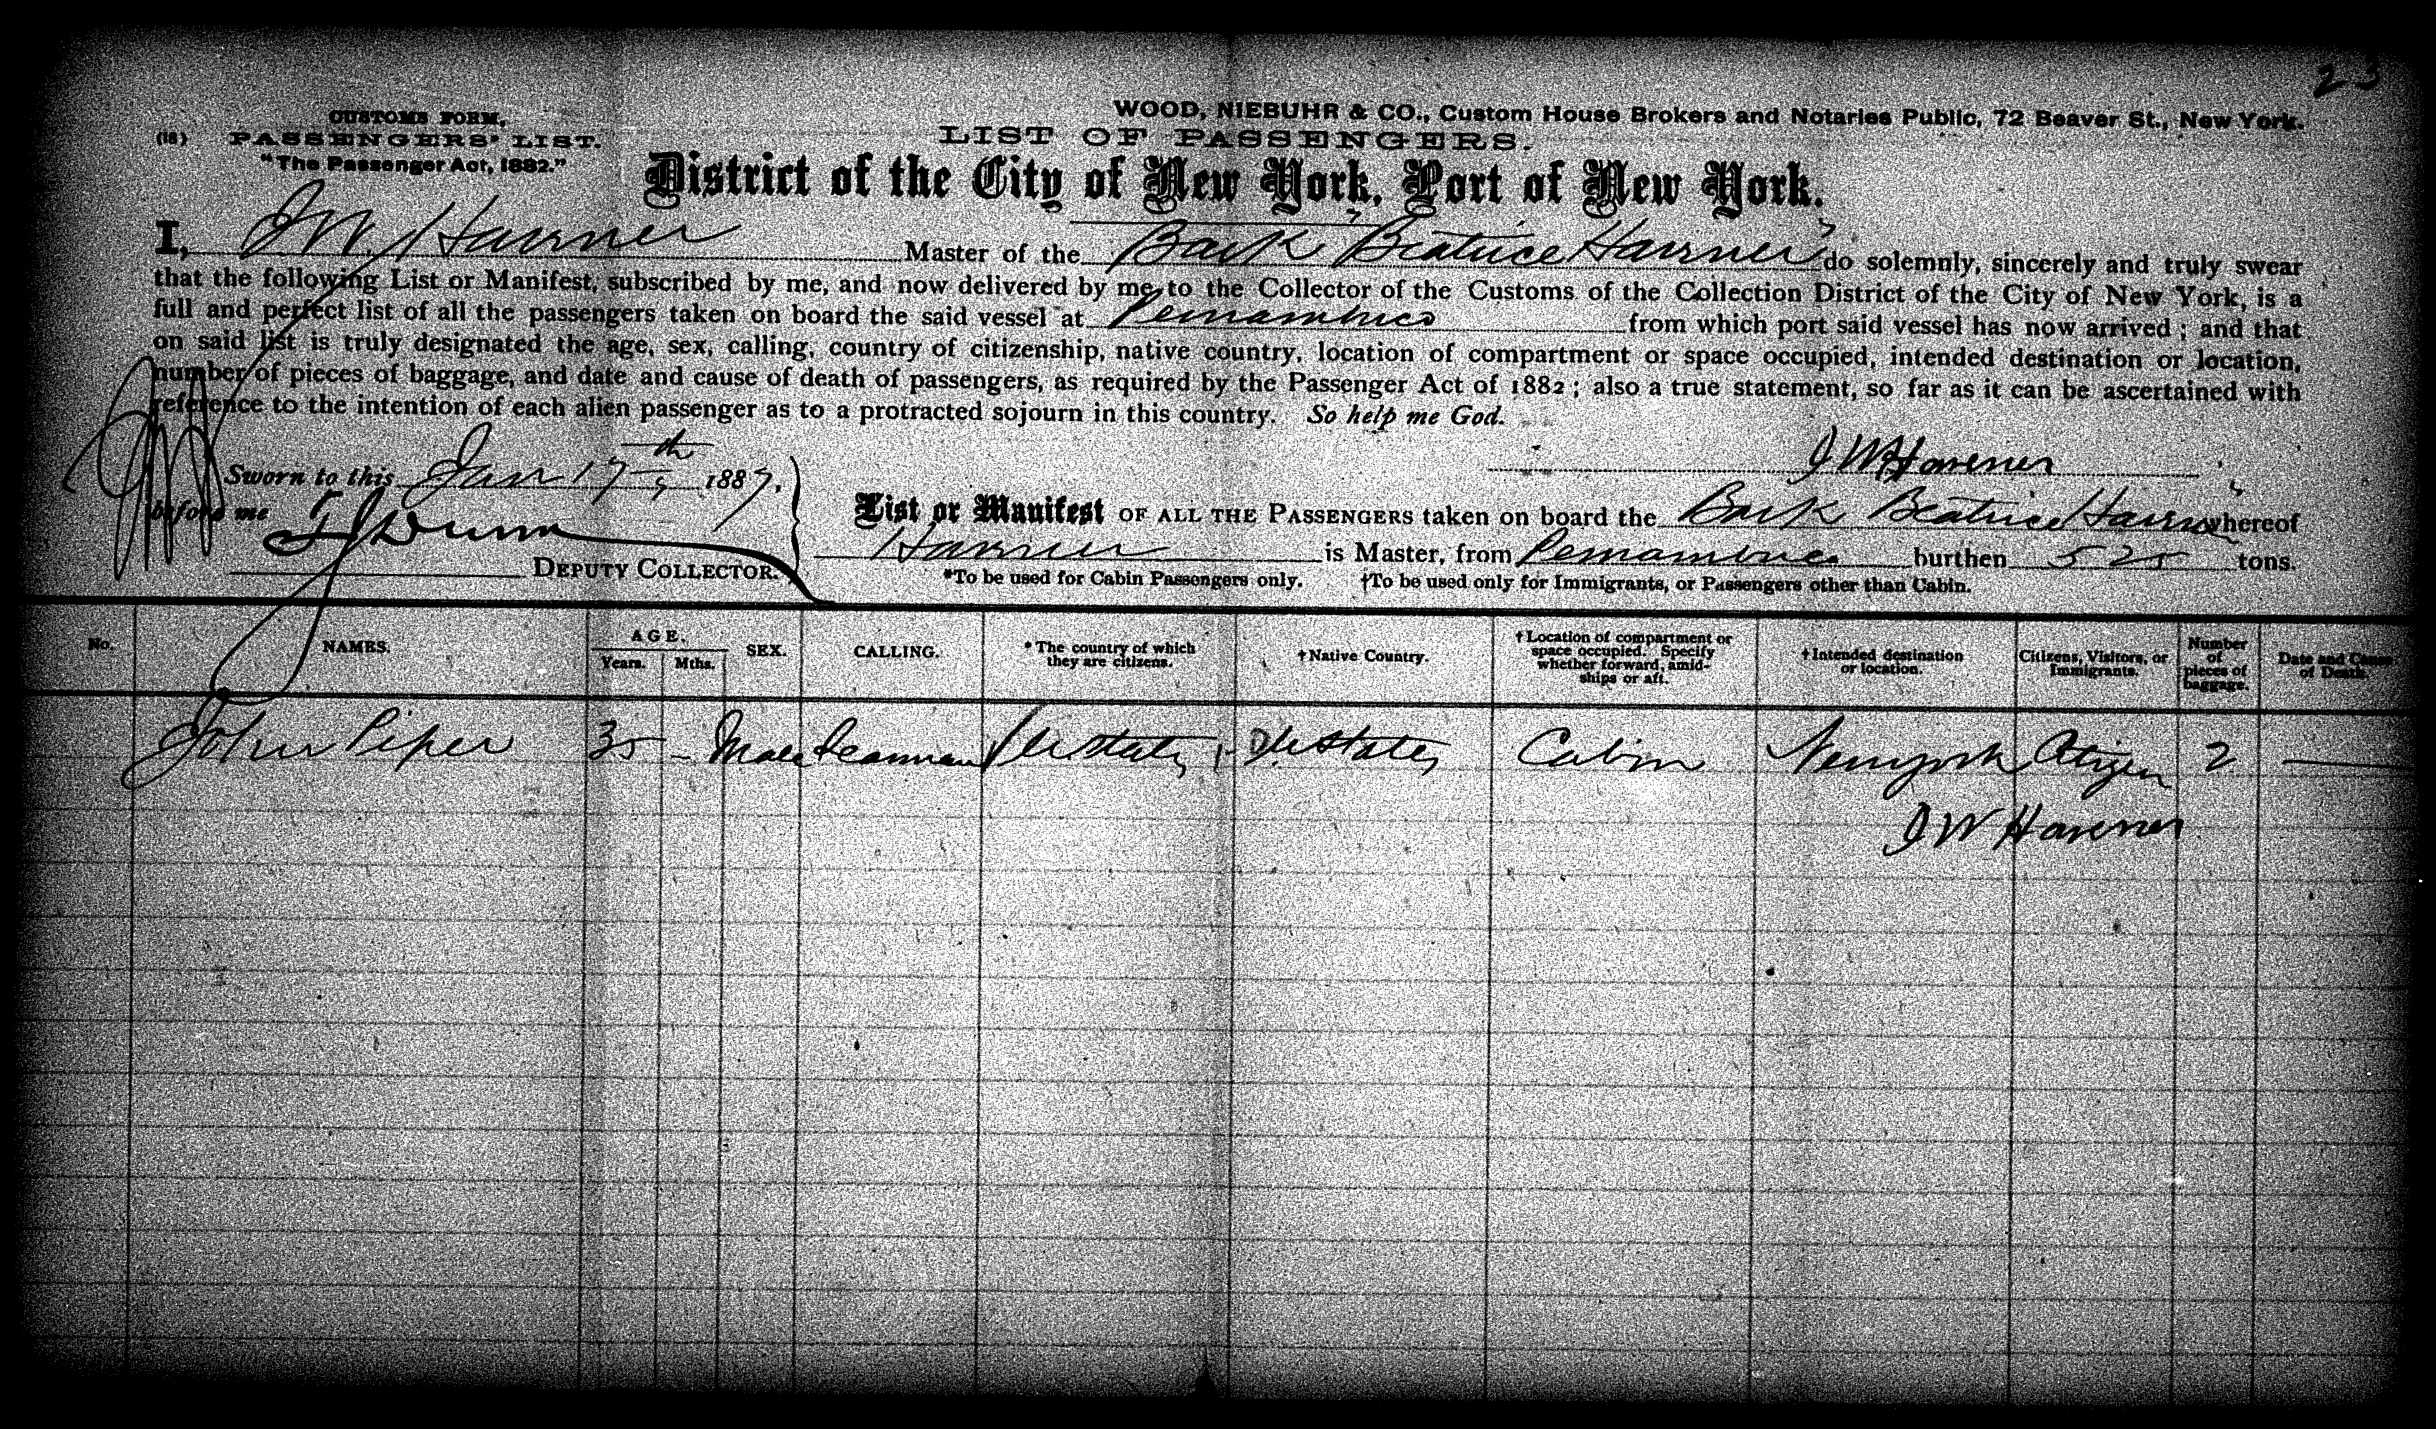 23
WOOD, NIEBUHR & CO., Custom House Brokers and Notaries Public, 72 Beaver St., New York.
CUSTOMS FORM.
(16) PASSENGERS' LIST.
"The Passenger Act, 1882."
LIST OF PASSENGERS.
District of the City of New York, Port of New York.
I, J W Havener Master of the Bark "Beatrice Havener" do solemnly, sincerely and truly swear
that the following List or Manifest, subscribed by me, and now delivered by me to the Collector of the Customs of the Collection District of the City of New York, is a
full and perfect list of all the passengers taken on board the said vessel at Pernambuco from which port said vessel has now arrived; and that
on said list is truly designated the age, sex, calling, country of citizenship, native country, location of compartment or space occupied, intended destination or location,
number of pieces of baggage, and date and cause of death of passengers, as required by the Passenger Act of 1882; also a true statement, so far as it can be ascertained with
reference to the intention of each alien passenger as to a protracted sojourn in this country. So help me God.
J W Havener
Sworn to this Jan 17th 1887,
before me
DEPUTY COLLECTOR.
List or Manifest OF ALL THE PASSENGERS taken on board the Bark Beatrice Havener whereof
Havener is Master, from Pernambuco burthen 525 tons.
*To be used for Cabin Passengers only. †To be used only for Immigrants, or Passengers other than Cabin.
No. NAMES. AGE. Years. Mths. SEX. CALLING. *The country of which they are citizens. †Native Country. †Location of compartment or space occupied. Specify whether forward, amidships or aft. †Intended destination or location. Citizens, Visitors, or Immigrants. Number of pieces of baggage. Date and Cause of Death.
John Piper 35 - Male Seaman U States U States Cabin New york Citizen 2 —
J W Havener